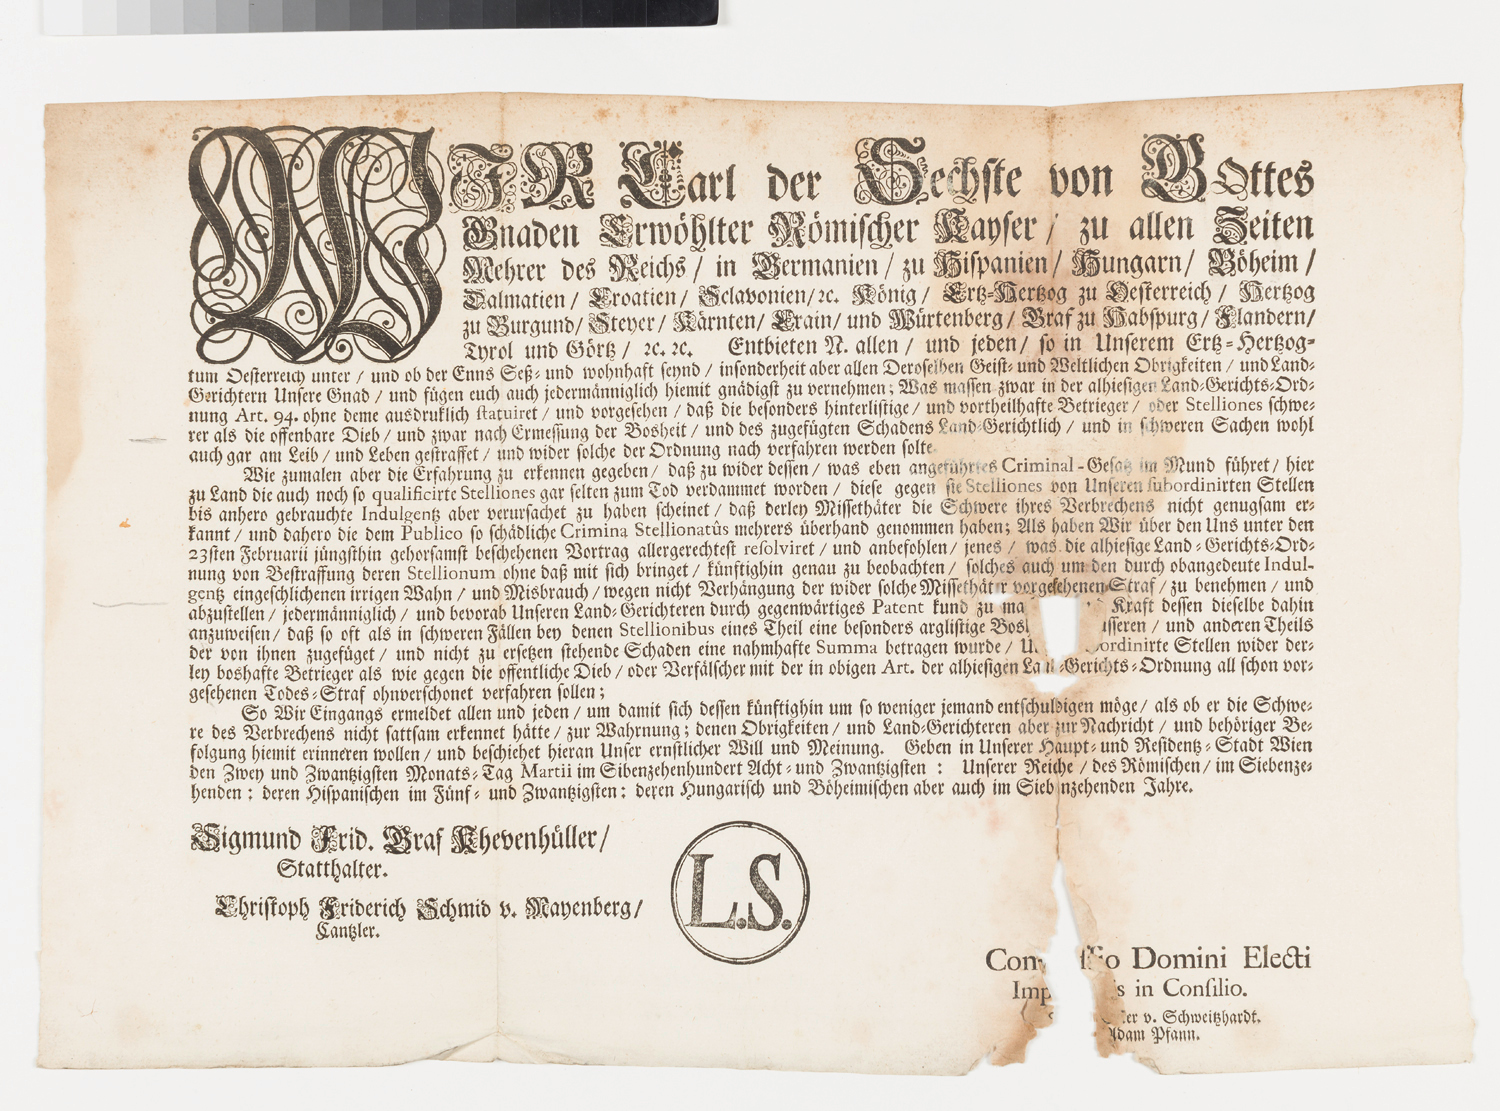 WIR Carl der Sechste von GOttes
Gnaden Erwöhlter Römischer Kayser / zu allen Zeiten
Mehrer des Reichs / in Germanien / zu Hispanien / Hungarn / Böheim /
Dalmatien / Croatien / Sclavonien / ꝛc. König / Ertz-Hertzog zu Oesterreich / Hertzog
zu Burgund / Steyer / Kärnten / Crain / und Würtenberg / Graf zu Habspurg / Flandern /
Tyrol und Görtz / ꝛc. ꝛc. Entbieten N. allen / und jeden / so in Unserem Ertz-Hertzog-
tum Oesterreich unter / und ob der Enns Seß- und wohnhaft seynd / insonderheit aber allen Deroselben Geist- und Weltlichen Obrigkeiten / und Land-
Gerichtern Unsere Gnad / und fügen euch auch jedermänniglich hiemit gnädigst zu vernehmen; Was massen zwar in der alhiesigen Land-Gerichts-Ord-
nung Art. 94. ohne deme ausdruklich statuiret / und vorgesehen / daß die besonders hinterlistige / und vortheilhafte Betrieger / oder Stelliones schwe-
rer als die offenbare Dieb / und zwar nach Ermessung der Bosheit / und des zugefügten Schadens Land-Gerichtlich / und in schweren Sachen wohl
auch gar am Leib / und Leben gestraffet / und wider solche der Ordnung nach verfahren werden solte
Wie zumalen aber die Erfahrung zu erkennen gegeben / daß zu wider dessen / was eben angeführtes Criminal-Gesatz im Mund führet / hier
zu Land die auch noch so qualificirte Stelliones gar selten zum Tod verdammet worden / diese gegen sie Stelliones von Unseren subordinirten Stellen
bis anhero gebrauchte Indulgentz aber verursachet zu haben scheinet / daß derley Missethäter die Schwere ihres Verbrechens nicht genugsam er-
kannt / und dahero die dem Publico so schädliche Crimina Stellionatûs mehrers überhand genommen haben; Als haben Wir über den Uns unter den
23sten Februarii jüngsthin gehorsamst beschehenen Vortrag allergerechtest resolviret / und anbefohlen / jenes / was die alhiesige Land-Gerichts-Ord-
nung von Bestraffung deren Stellionum ohne daß mit sich bringet / künftighin genau zu beobachten / solches auch um den durch obangedeute Indul-
gentz eingeschlichenen irrigen Wahn / und Misbrauch / wegen nicht Verhängung der wider solche Missethäter vorgesehenen Straf / zu benehmen / und
abzustellen / jedermänniglich / und bevorab Unseren Land-Gerichteren durch gegenwärtiges Patent kund zu ma Kraft dessen dieselbe dahin
anzuweisen / daß so oft als in schweren Fällen bey denen Stellionibus eines Theil eine besonders arglistige Bos usseren / und anderen Theils
der von ihnen zugefüget / und nicht zu ersetzen stehende Schaden eine nahmhafte Summa betragen wurde / U ordinirte Stellen wider der-
ley boshafte Betrieger als wie gegen die offentliche Dieb / oder Verfälscher mit der in obigen Art. der alhiesigen Land-Gerichts-Ordnung all schon vor-
gesehenen Todes-Straf ohnverschonet verfahren sollen;
So Wir Eingangs ermeldet allen und jeden / um damit sich dessen künftighin um so weniger jemand entschuldigen möge / als ob er die Schwe-
re des Verbrechens nicht sattsam erkennet hätte / zur Wahrnung; denen Obrigkeiten / und Land-Gerichteren aber zur Nachricht / und behöriger Be-
folgung hiemit erinneren wollen / und beschiehet hieran Unser ernstlicher Will und Meinung. Geben in Unserer Haupt- und Residentz-Stadt Wien
den Zwey und Zwantzigsten Monats-Tag Martii im Sibenzehenhundert Acht- und Zwantzigsten : Unserer Reiche / des Römischen / im Siebenze-
henden : deren Hispanischen im Fünf- und Zwantzigsten : deren Hungarisch und Böheimischen aber auch im Siebenzehenden Jahre.
Sigmund Frid. Graf Khevenhüller /
Statthalter.
Christoph Friderich Schmid v. Mayenberg /
Cantzler.
L.S.
Com ssio Domini Electi
Imp s in Consilio.
ler v. Schweitzhardt.
Adam Pfann.